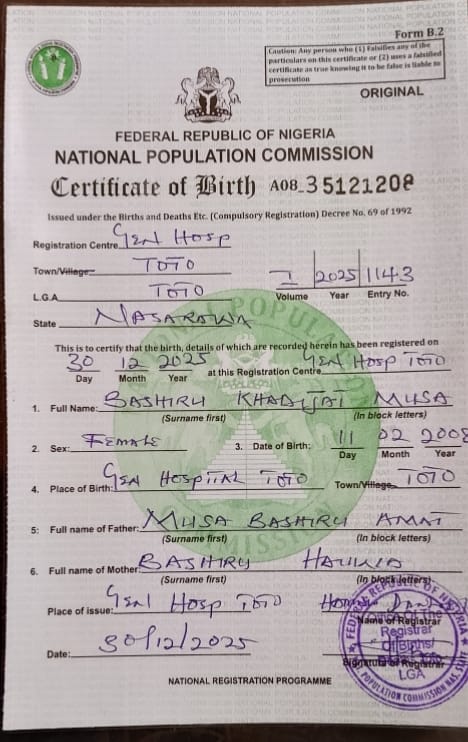 Form B.2
Caution: Any person who (1) Falsifies any of the
particulars on this certificate or (2) uses a falsified
certificate as true knowing it to be false is liable to
prosecution
ORIGINAL
FEDERAL REPUBLIC OF NIGERIA
NATIONAL POPULATION COMMISSION
Certificate of Birth A08_35121208
Issued under the Births and Deaths Etc. (Compulsory Registration) Decree No. 69 of 1992
Registration Centre Gen Hosp
Town/Village TOTO
L.G.A. TOTO
I 2025 1143
Volume Year Entry No.
State NASARAWA
This is to certify that the birth, details of which are recorded herein has been registered on
30 12 2025 at this Registration Centre Gen Hosp TOTO
Day Month Year
1. Full Name: BASHIRU KHADIJAT MUSA
(Surname first) (In block letters)
2. Sex: FEMALE 3. Date of Birth: 11 02 2008
Day Month Year
4. Place of Birth: Gen HOSPITAL TOTO Town/Village TOTO
5: Full name of Father: MUSA BASHIRU
(Surname first) (In block letters)
6. Full name of Mother: BASHIRU
(Surname first) (In block letters)
Place of issue: Genl Hosp TOTO
Name of Registrar
Registrar
Of Births/
Date: 30/12/2025
Signature of Registrar
LGA
FEDERAL REPUBLIC OF NIGERIA
POPULATION COMMISSION
NATIONAL REGISTRATION PROGRAMME